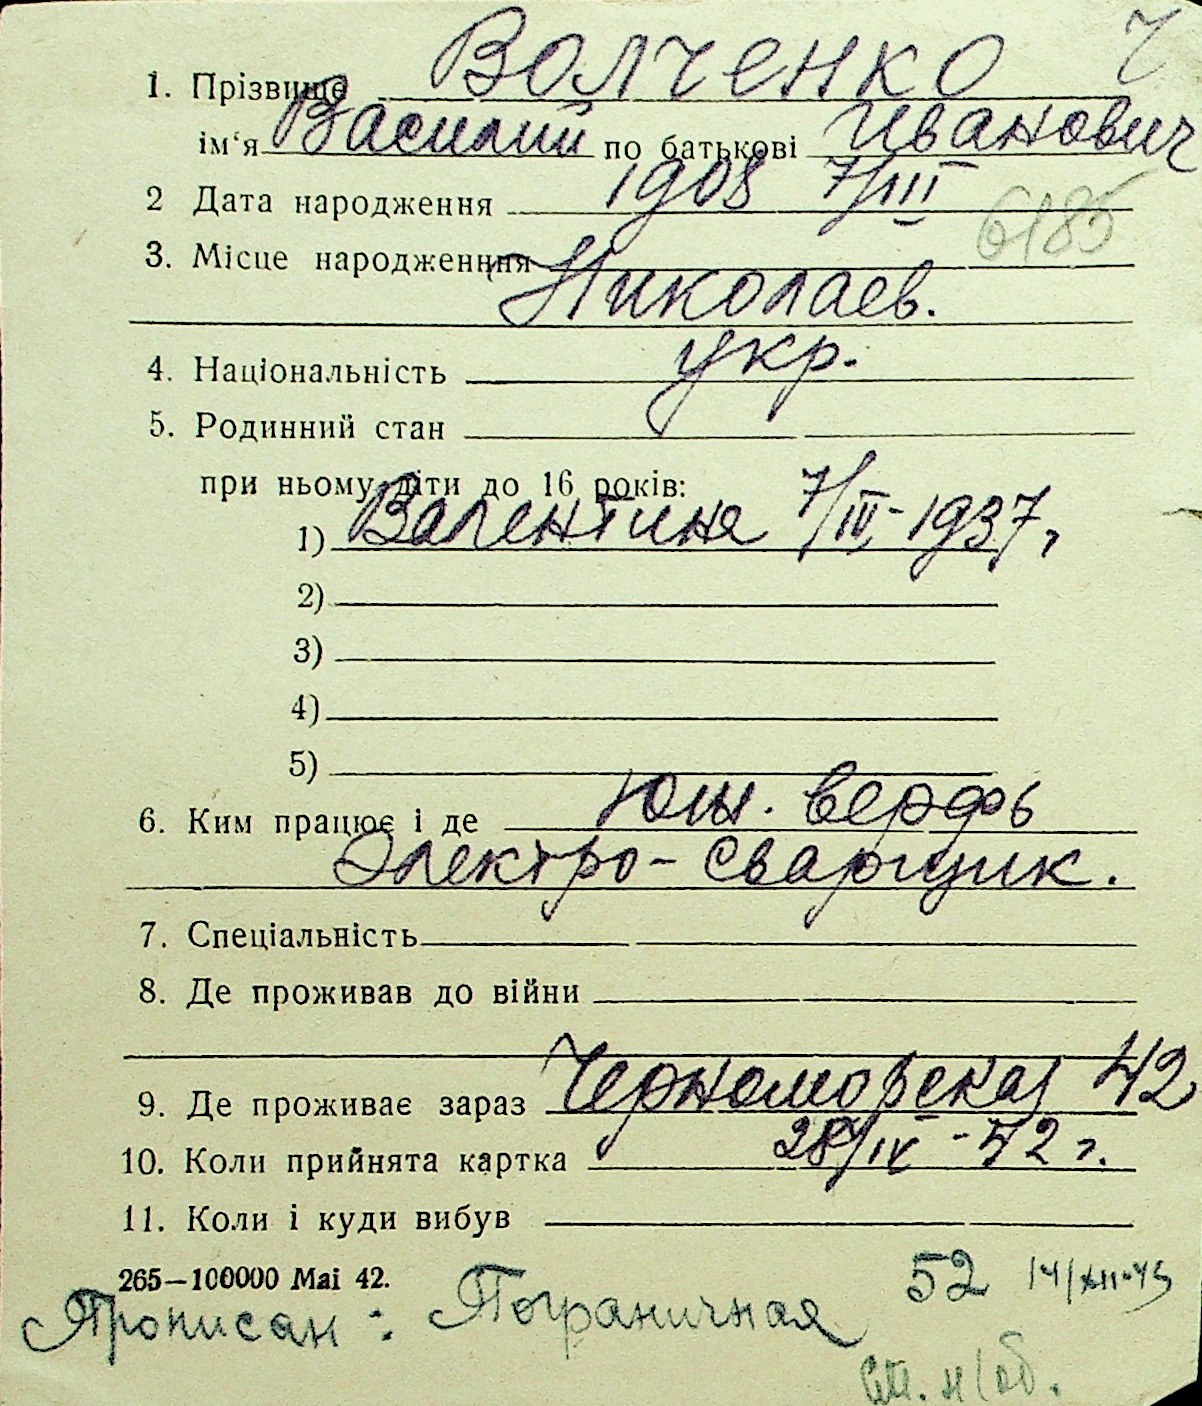 1. Прізвище Волченко
ім‘я Василий по батькові Иванович
2 Дата народження 1908 7/III
6185
3. Місце народженння Николаев.
4. Національність укр.
5. Родинний стан
при ньому діти до 16 років:
1) Валентина 7/III-1937г
2)
3)
4)
5)
6. Ким працює і де Юж. верфь
Электро-сварщик.
7. Спеціальність
8. Де проживав до війни
9. Де проживає зараз Черноморская 42
10. Коли прийнята картка 28/IV-42 г.
11. Коли і куди вибув
265—100000 Mai 42.
52 14/XII-43
Прописан: Пограничная